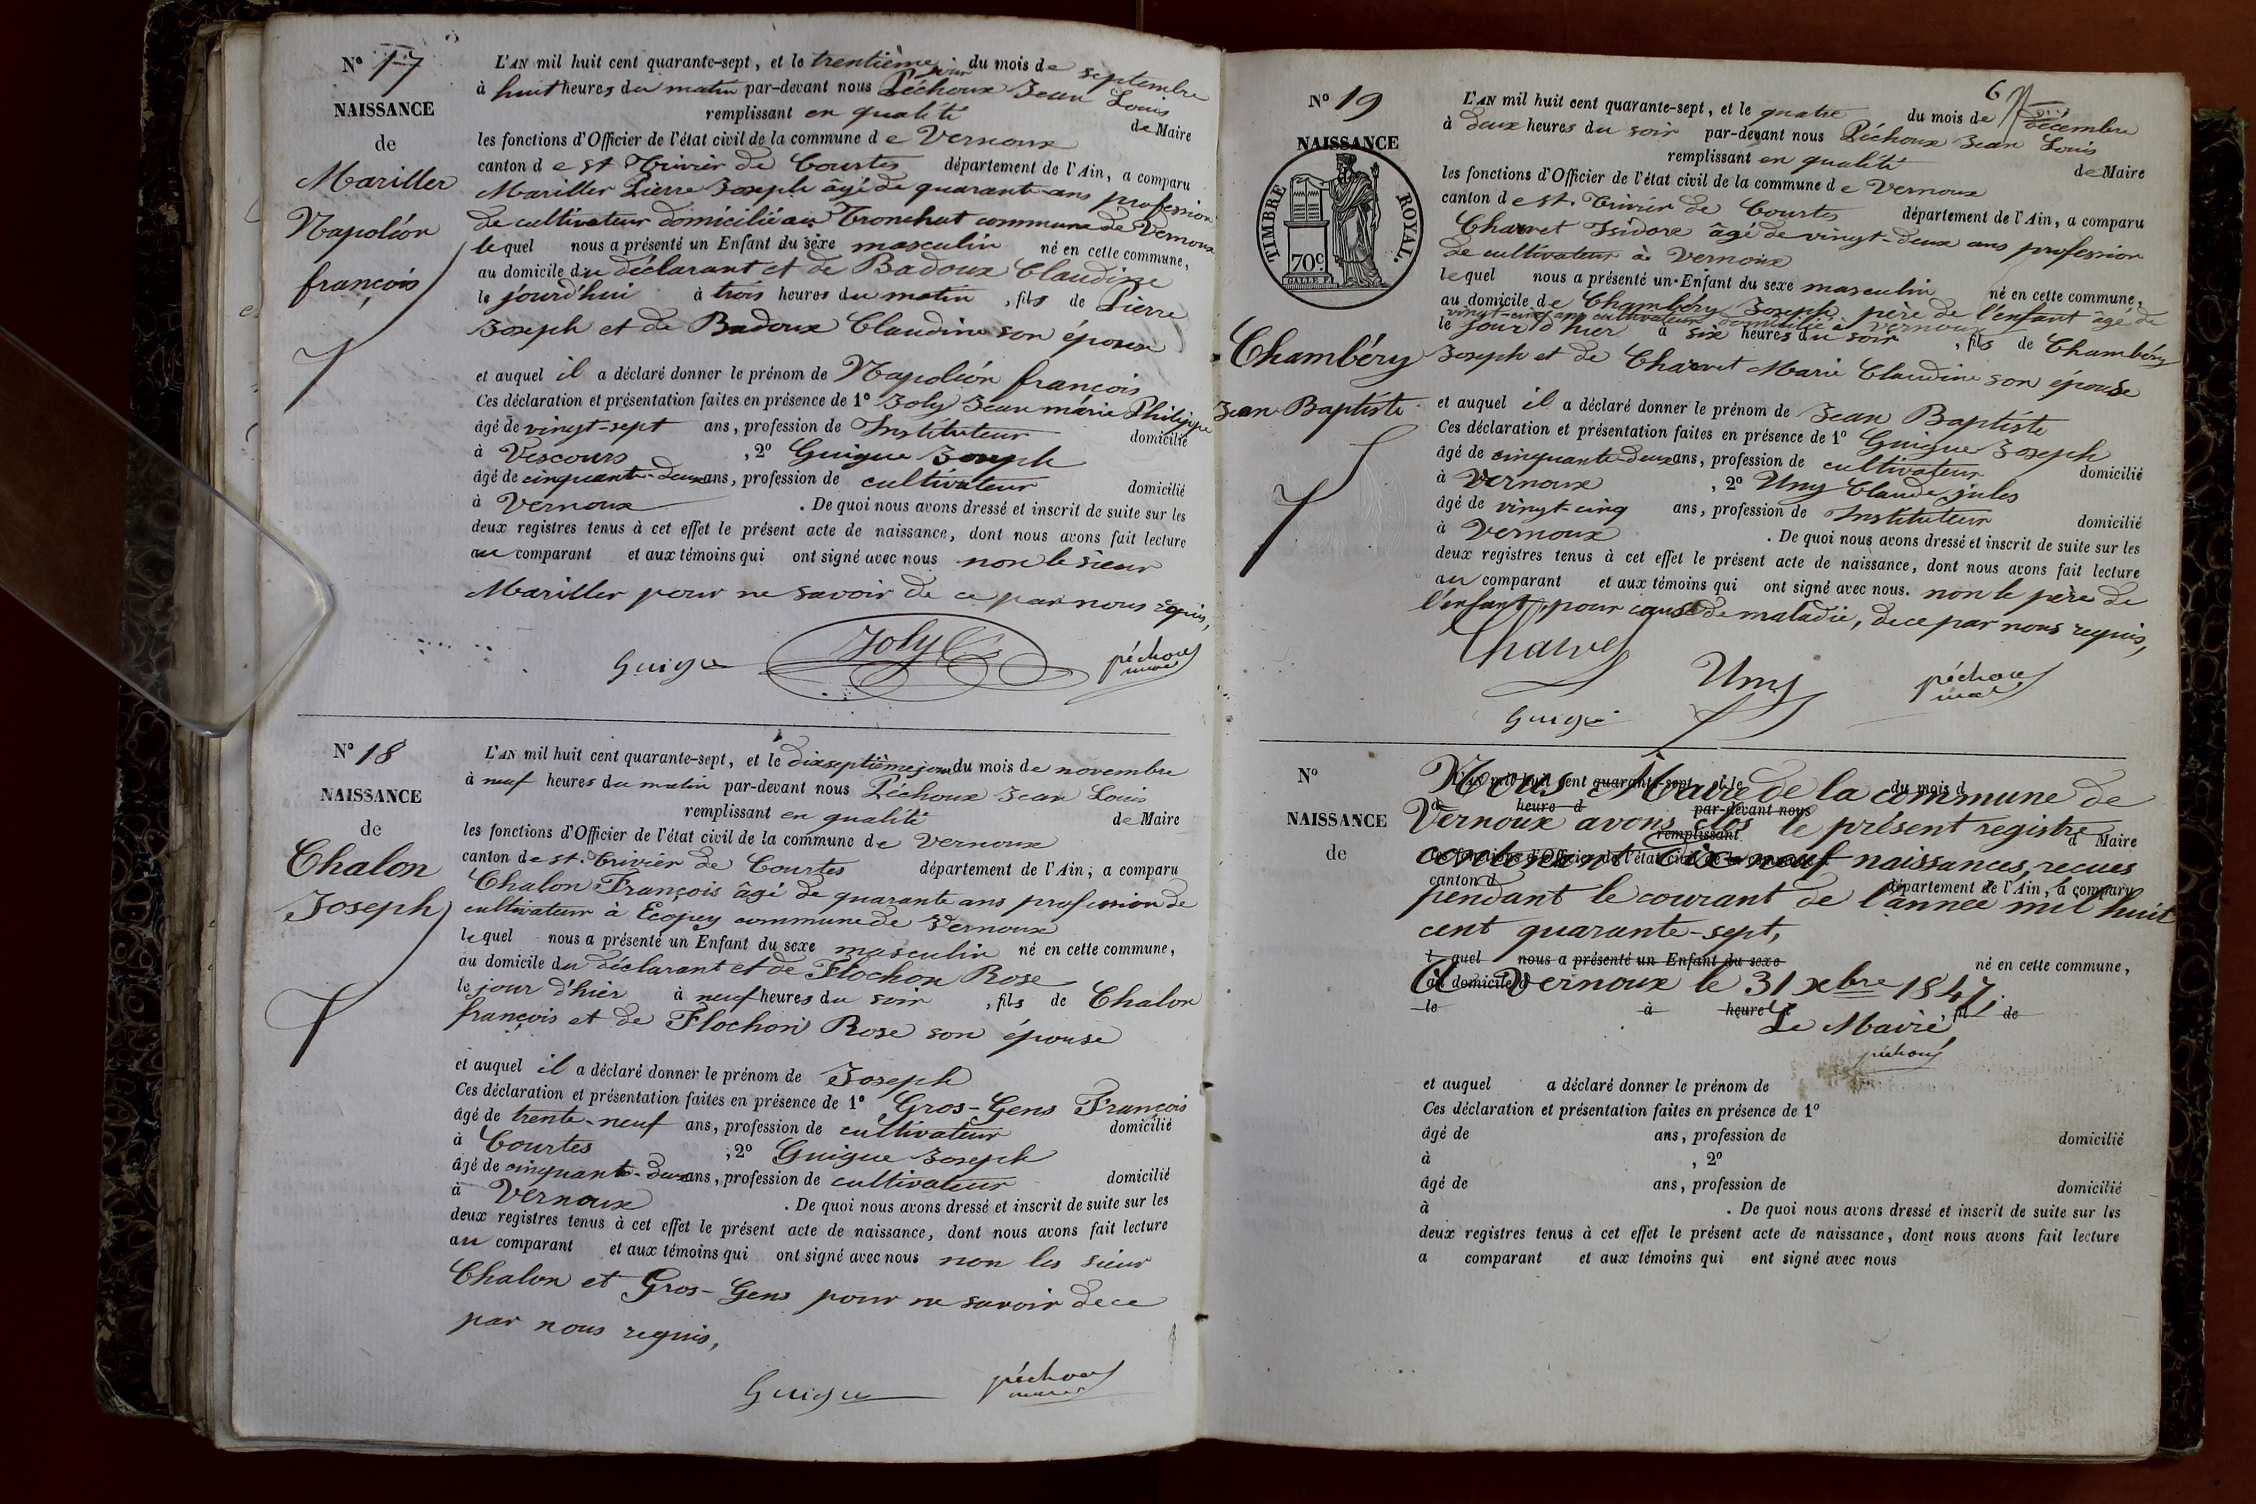 N° 17
NAISSANCE
de
Mariller
Napoléon
françois
L'AN mil huit cent quarante-sept, et le trentième jour du mois de septembre
à huit heures du matin par-devant nous Péchoux Jean Louis
remplissant en qualité de Maire
les fonctions d'Officier de l'état civil de la commune de Vernoux
canton de St Trivier de Courtes département de l'Ain, a comparu
Mariller Pierre Joseph âgé de quarante ans profession
de cultivateur domicilié au Tronchat commune de Vernoux
lequel nous a présenté un Enfant du sexe masculin né en cette commune,
au domicile du déclarant et de Badoux Claudine
le jourd'hui à trois heures du matin, fils de Pierre
Joseph et de Badoux Claudine son épouse
et auquel il a déclaré donner le prénom de Napoléon françois
Ces déclaration et présentation faites en présence de 1° Joly Jean marie Philippe
âgé de vingt-sept ans, profession de Instituteur domicilié
à Vescours, 2° Guigue Joseph
âgé de cinquante-deux ans, profession de cultivateur domicilié
à Vernoux. De quoi nous avons dressé et inscrit de suite sur les
deux registres tenus à cet effet le présent acte de naissance, dont nous avons fait lecture
au comparant et aux témoins qui ont signé avec nous non le sieur
Mariller pour ne savoir de ce par nous requis,
Guigue Joly péchoux
maire
N° 18
NAISSANCE
de
Chalon
Joseph
L'AN mil huit cent quarante-sept, et le dixseptième jour du mois de novembre
à neuf heures du matin par-devant nous Péchoux Jean Louis
remplissant en qualité de Maire
les fonctions d'Officier de l'état civil de la commune de Vernoux
canton de St. Trivier de Courtes département de l'Ain, a comparu
Chalon François âgé de quarante ans profession de
cultivateur à Ecopey commune de Vernoux
lequel nous a présenté un Enfant du sexe masculin né en cette commune,
au domicile du déclarant et de Flochon Rose
le jour d'hier à neuf heures du soir, fils de Chalon
françois et de Flochon Rose son épouse
et auquel il a déclaré donner le prénom de Joseph
Ces déclaration et présentation faites en présence de 1° Gros-Gens François
âgé de trente-neuf ans, profession de cultivateur domicilié
à Courtes, 2° Guigue Joseph
âgé de cinquante-deux ans, profession de cultivateur domicilié
à Vernoux. De quoi nous avons dressé et inscrit de suite sur les
deux registres tenus à cet effet le présent acte de naissance, dont nous avons fait lecture
au comparant et aux témoins qui ont signé avec nous non les sieur
Chalon et Gros-Gens pour ne savoir de ce
par nous requis,
Guigue péchoux
maire
6
N° 19
NAISSANCE
TIMBRE ROYAL.
70c.
Chambéry
Jean Baptiste
L'AN mil huit cent quarante-sept, et le quatre du mois de décembre
à deux heures du soir par-devant nous Péchoux Jean Louis
remplissant en qualité de Maire
les fonctions d'Officier de l'état civil de la commune de Vernoux
canton de St. Trivier de Courtes département de l'Ain, a comparu
Charvet Isidore âgé de vingt-deux ans profession
de cultivateur à Vernoux
lequel nous a présenté un Enfant du sexe masculin né en cette commune,
au domicile de Chambéry Joseph père de l'enfant âgé de
vingt-cinq ans cultivateur domicilié à Vernoux
le jour d'hier à six heures du soir, fils de Chambéry
Joseph et de Charvet Marie Claudine son épouse
et auquel il a déclaré donner le prénom de Jean Baptiste
Ces déclaration et présentation faites en présence de 1° Guigue Joseph
âgé de cinquante-deux ans, profession de cultivateur domicilié
à Vernoux, 2° Uny Claude jules
âgé de vingt cinq ans, profession de Instituteur domicilié
à Vernoux. De quoi nous avons dressé et inscrit de suite sur les
deux registres tenus à cet effet le présent acte de naissance, dont nous avons fait lecture
au comparant et aux témoins qui ont signé avec nous. non le père de
l'enfant, pour cause de maladie, de ce par nous requis,
Charvet
Uny péchoux
maire
Guigue
N°
NAISSANCE
de
L'AN mil huit cent quarante-sept, et le du mois d
Nous Maire de la commune de
à heure d par-devant nous
Vernoux avons clos le présent registre
remplissant d Maire
les fonctions d'Officier de l'état civil de la commune d
contenant dix-neuf naissances, reçues
canton d département de l'Ain, a comparu
pendant le courant de l'année mil huit
cent quarante-sept,
l quel nous a présenté un Enfant du sexe né en cette commune,
au domicile d
A Vernoux le 31 xbre 1847.
le à heure d fil de
Le Maire
péchoux
et auquel a déclaré donner le prénom de
Ces déclaration et présentation faites en présence de 1°
âgé de ans, profession de domicilié
à , 2°
âgé de ans, profession de domicilié
à . De quoi nous avons dressé et inscrit de suite sur les
deux registres tenus à cet effet le présent acte de naissance, dont nous avons fait lecture
a comparant et aux témoins qui ont signé avec nous